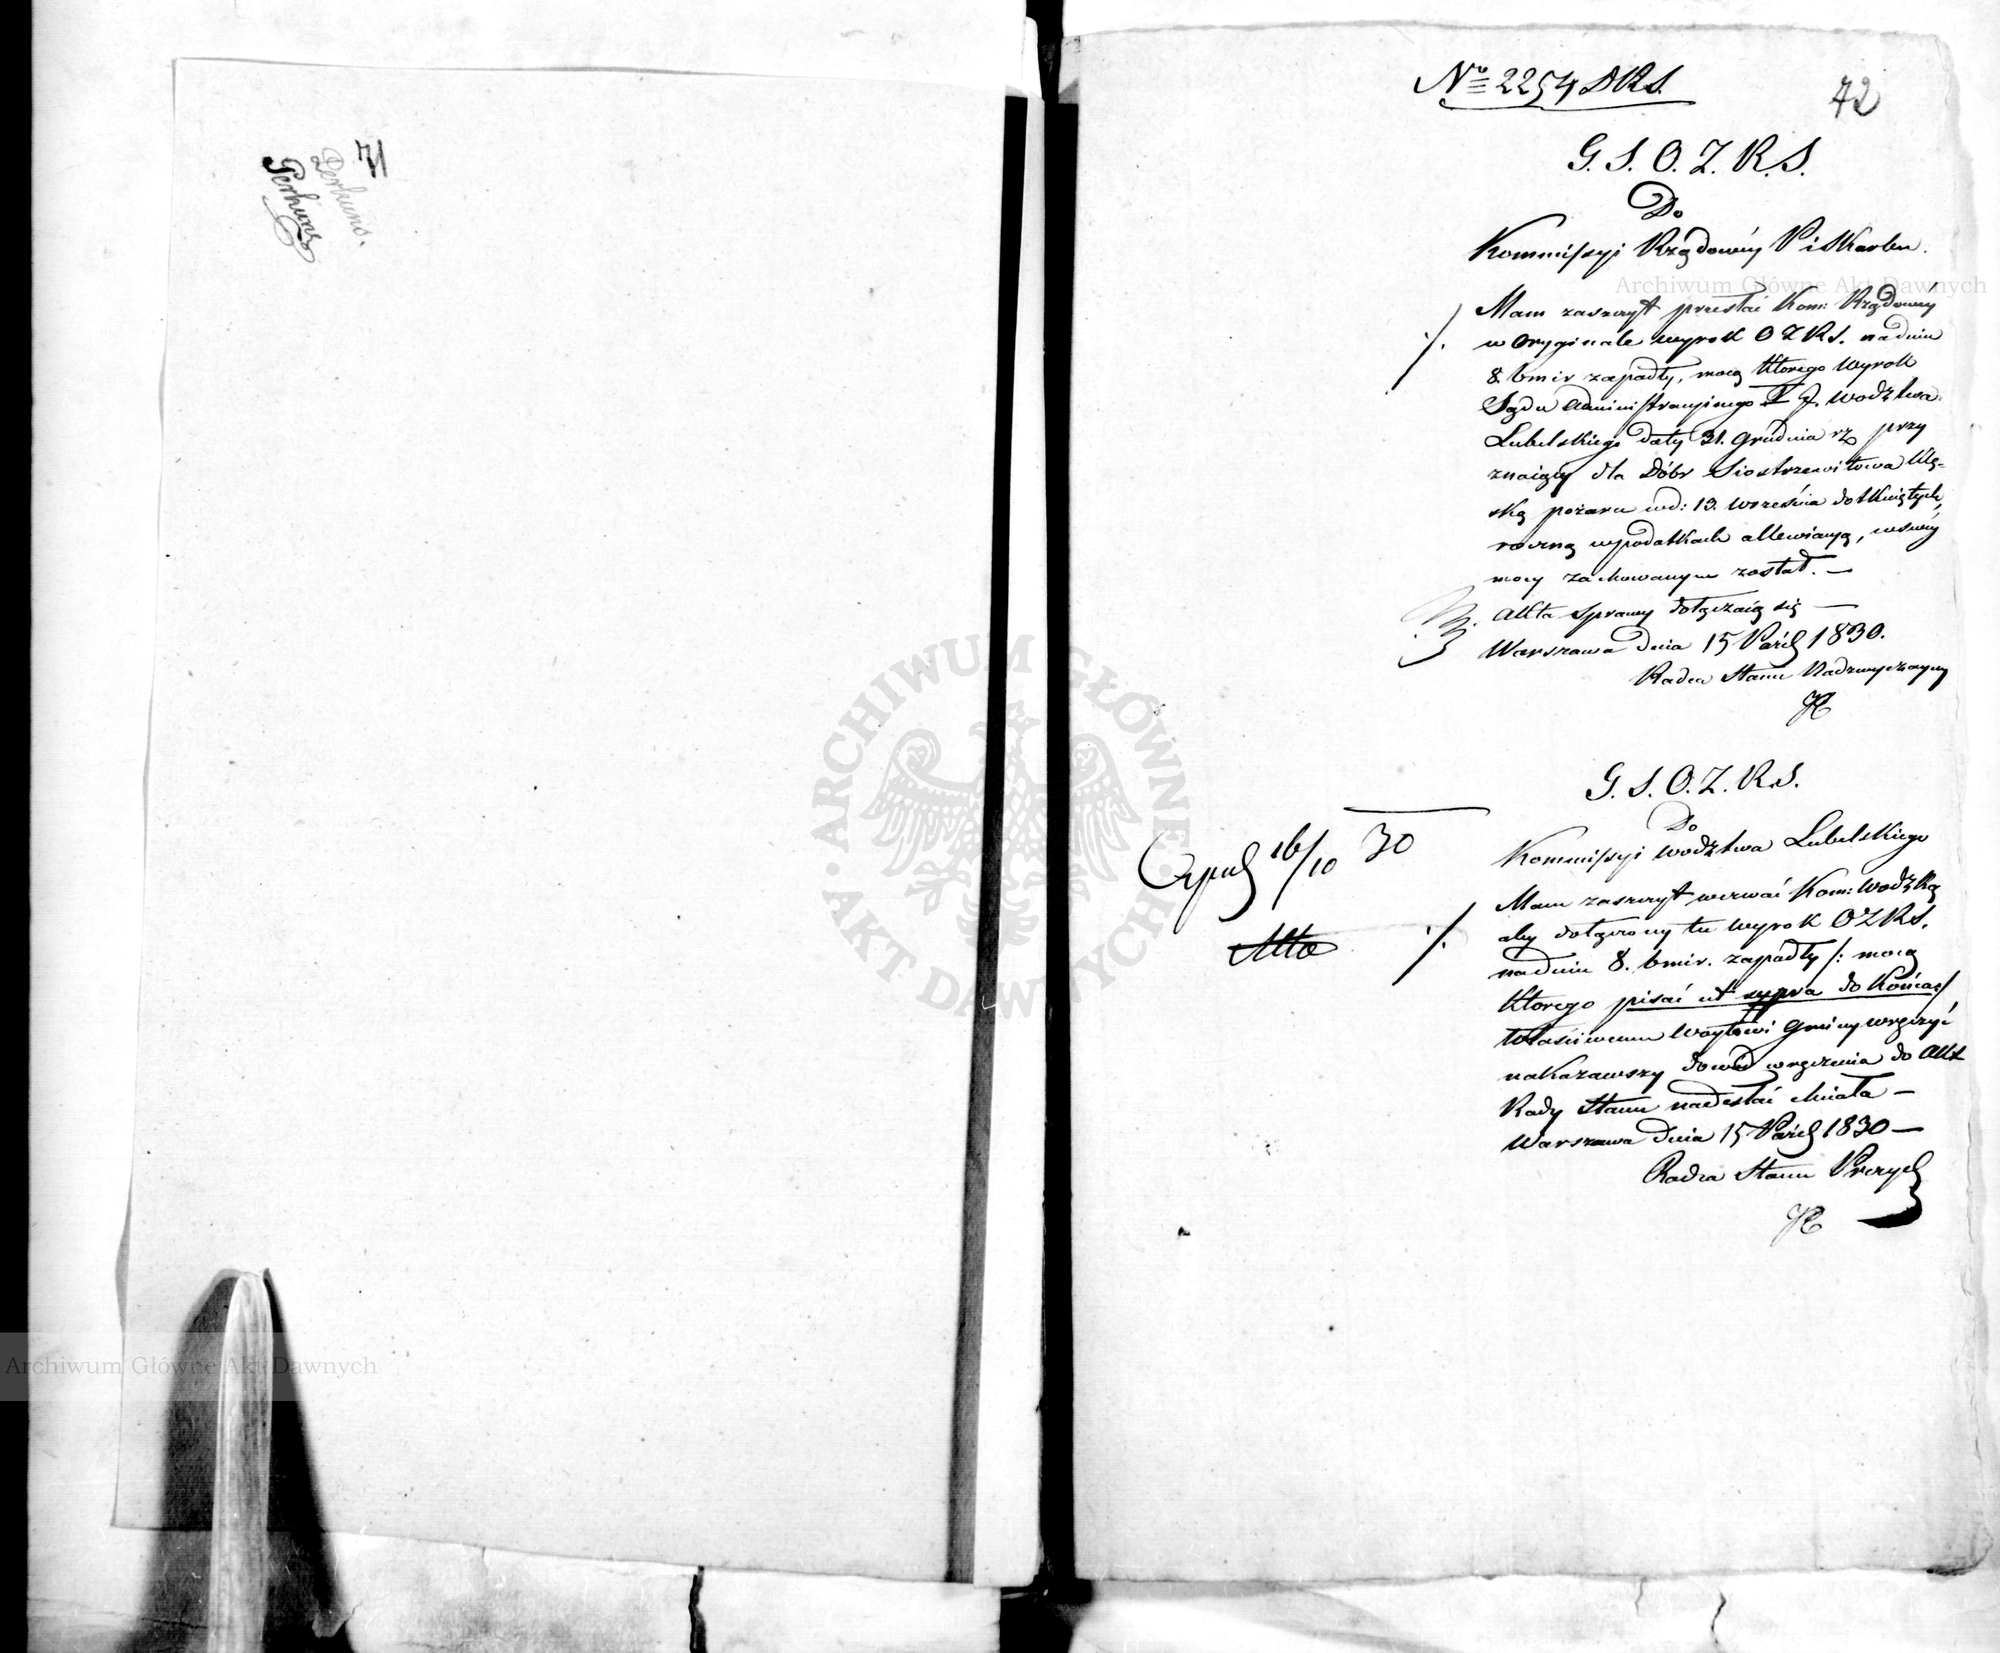 71
Derkuns.
Perkuns
No 2254 DRS.
72
G. S. O. Z. R. S.
Do
Kommissyi Rządowéy P i Skarbu.
Mam zaszczyt przesłać Kom: Rządowéy
w Oryginale wyrok OZRS. na dniu
8. bmir zapadły, mocą którego wyrok
Sądu Administracyinego I J. Wodztwa
Lubelskiego daty 31. Grudnia rz przy
znaiący dla Dóbr Siostrzewitowa klę-
ską pożaru wd: 13. Września dotkniętych,
roczną w podatkach allewiacyą, w swéy
mocy zachowanym został. —
Akta sprawy dołączaią się —
Warszawa dnia 15 Paźdź 1830.
Radca Stanu Nadzwyczayny
G. S. O. Z. R. S.
Do
Kommissyi Wodztwa Lubelskiego
Mam zaszczyt wezwać Kom: Wodzką
aby dołączony tu wyrok OZRS.
na dniu 8. bmir. zapadły /: mocą
którego pisać ut supra do końca:/
właściwemu Woytowi Gminy wręczyć
nakazawszy dowód wręczenia do Akt
Rady Stanu nadesłać chciała —
Warszawa dnia 15 Paźdź 1830 —
Radca Stanu Prezyd
16/10 30
Akta
Archiwum Główne Akt Dawnych
ARCHIWUM GŁÓWNE · AKT DAWNYCH ·
Archiwum Główne Akt Dawnych